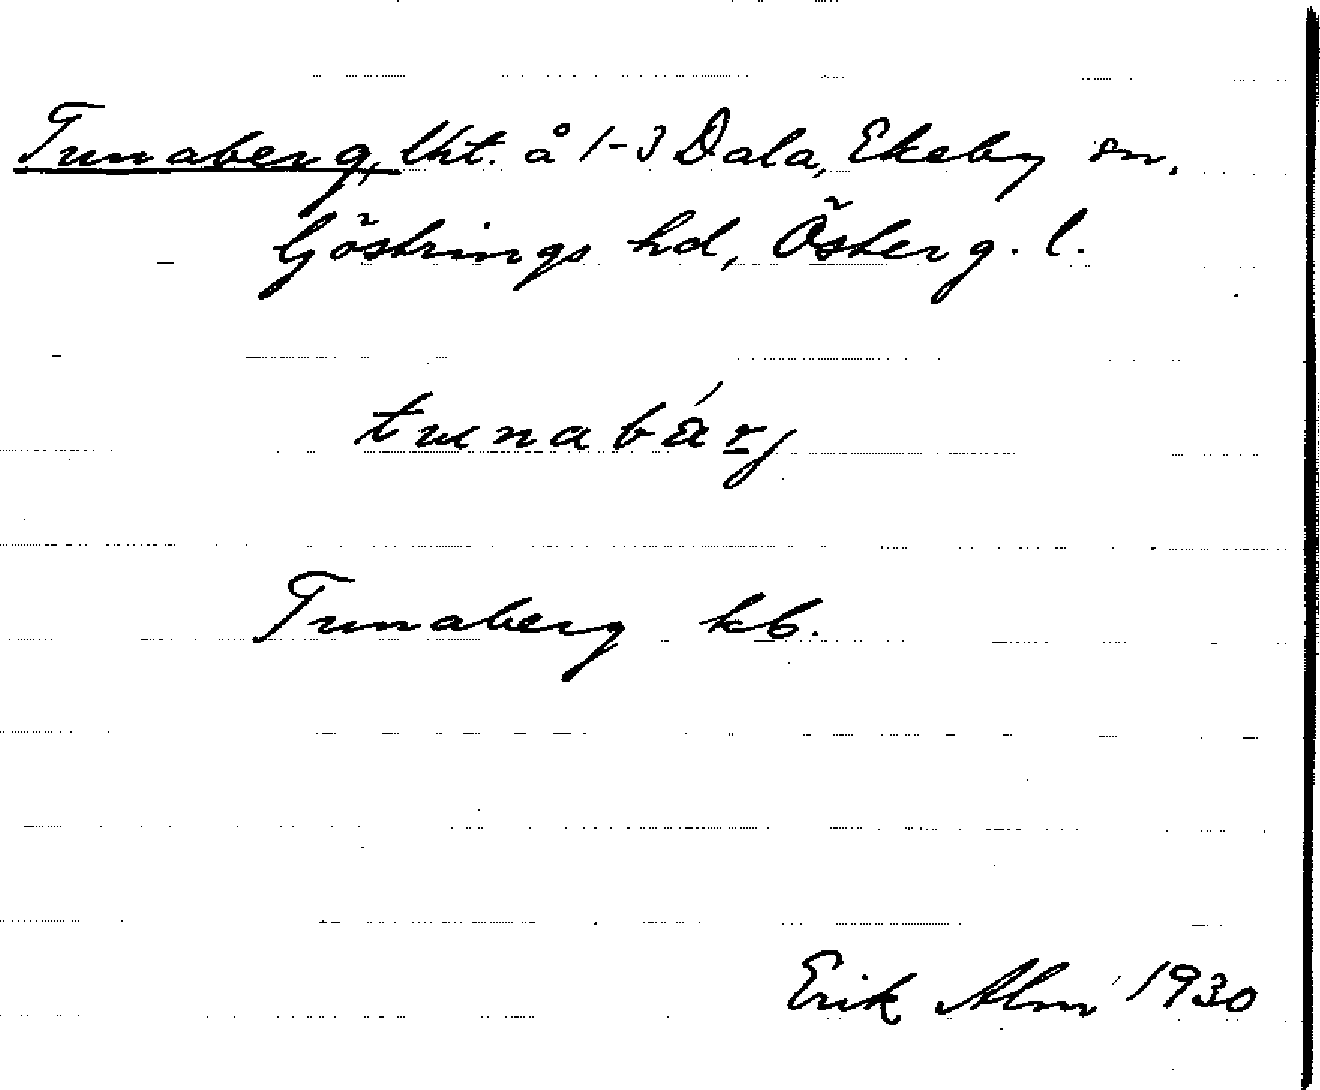 Tunaberg, lht. å 1-3 Dala, Ekeby sn.
Göstrings hd, Österg. l.
tunabärj
Tunaberg kb.
Erik Alm 1930